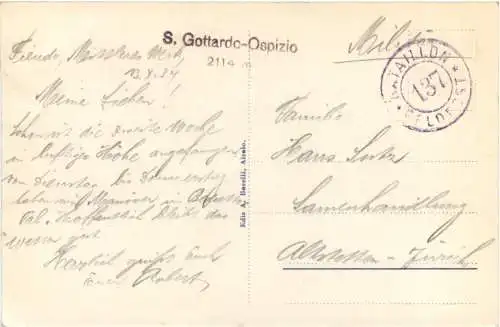 S. Gottardo-Ospizio
2114 m
Militär
BATAILLON
137
FELDPOST
13.X.39
Meine Lieben!
Schon ist die zweite Woche
in luftiger Höhe angefangen
von Dienstag bis Donnerstag
haben wir Manöver, in
Tal. Hoffentlich bleibt das
Wetter gut.
Herzlich grüsst Euch
Euer Robert
Edit. A. Borelli, Airolo.
Familie
Hans
Samenhandlung
Altstetten-Zürich